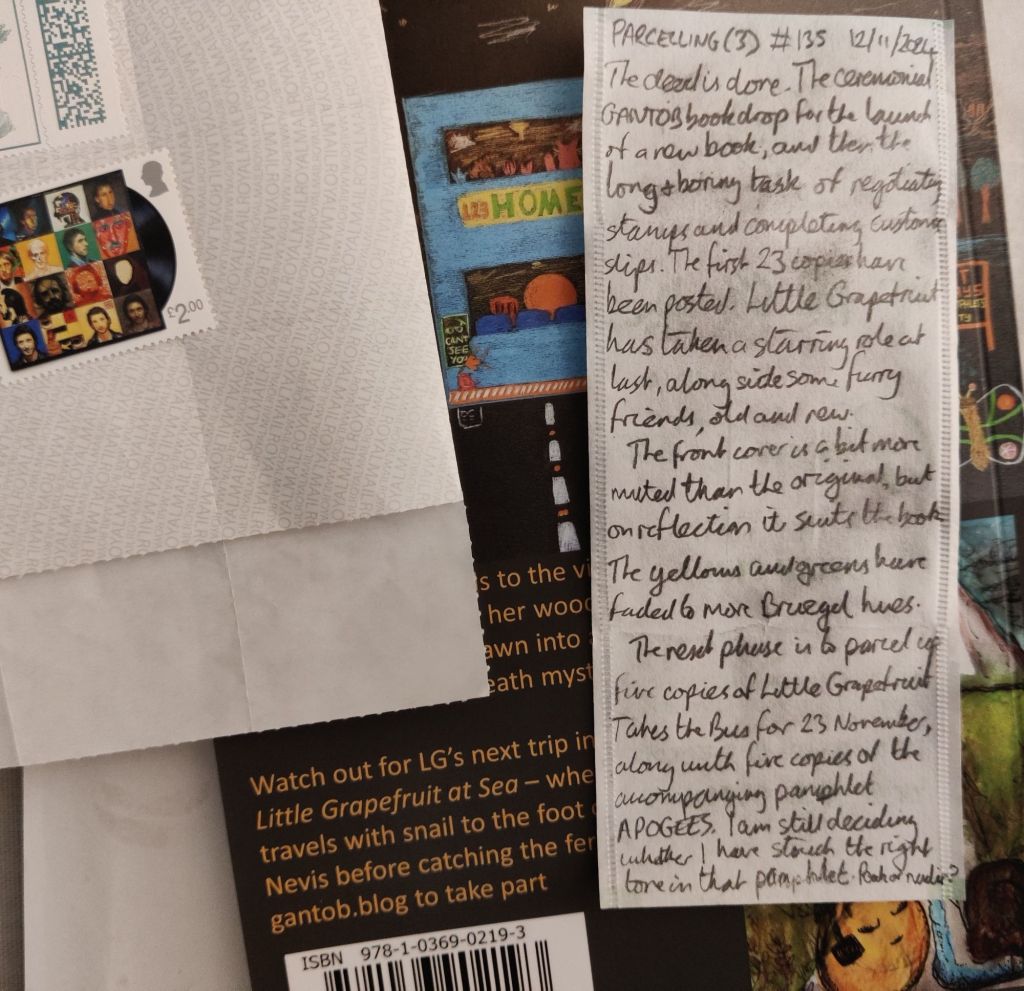 PARCELLING (3) #135 12/11/2024
The deed is done. The ceremonial
GANTOB book drop for the launch
of a new book, and then the
long & boring task of negotiating
stamps and completing customs
slips. The first 23 copies have
been posted. Little Grapefruit
has taken a starring role at
last, along side some furry
friends, old and new.
The front cover is a bit more
muted than the original, but
on reflection it suits the book
The yellows and greens have
faded to more Bruegel hues.
The next phase is to parcel up
five copies of Little Grapefruit
Takes the Bus for 23 November,
along with five copies of the
accompanying pamphlet
APOGEES. I am still deciding
whether I have struck the right
tone in that pamphlet. Peak or nadir?
£2.00
123 HOME
CANT
SEE
YOU
s to the vi
her wood
awn into
eath myst
Watch out for LG's next trip in
Little Grapefruit at Sea – whe
travels with snail to the foot
Nevis before catching the fer
gantob.blog to take part
ISBN 978-1-0369-0219-3